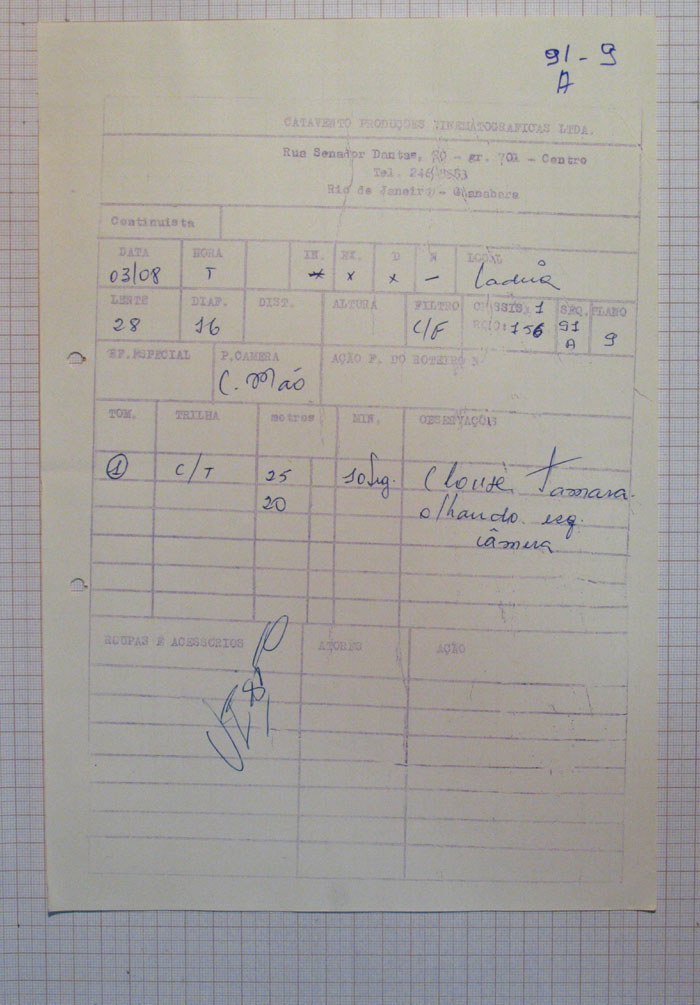 91 - 9
A
CATAVENTO PRODUÇÕES CINEMATOGRAFICAS LTDA.
Rua Senador Dantas, - gr. 701 - Centro
Tel.
Rio de Janeiro - Guanabara
Continuista
DATA HORA IN. EX. D N LOCAL
03/08 T x x x - Ladeira
LENTE DIAF. DIST. ALTURA FILTRO CHASSIS: 1 SEQ. PLANO
28 16 C/F ROLO: 156 91 A 9
EF. ESPECIAL P. CAMERA AÇÃO F. DO ROTEIRO N
C. Mão
TOM. TRILHA metros MIN. OBSERVAÇÕES
1 C/T 25 10 seg. Close Tamara
20 olhando esq.
câmera
ROUPAS E ACESSORIOS ATORES AÇÃO